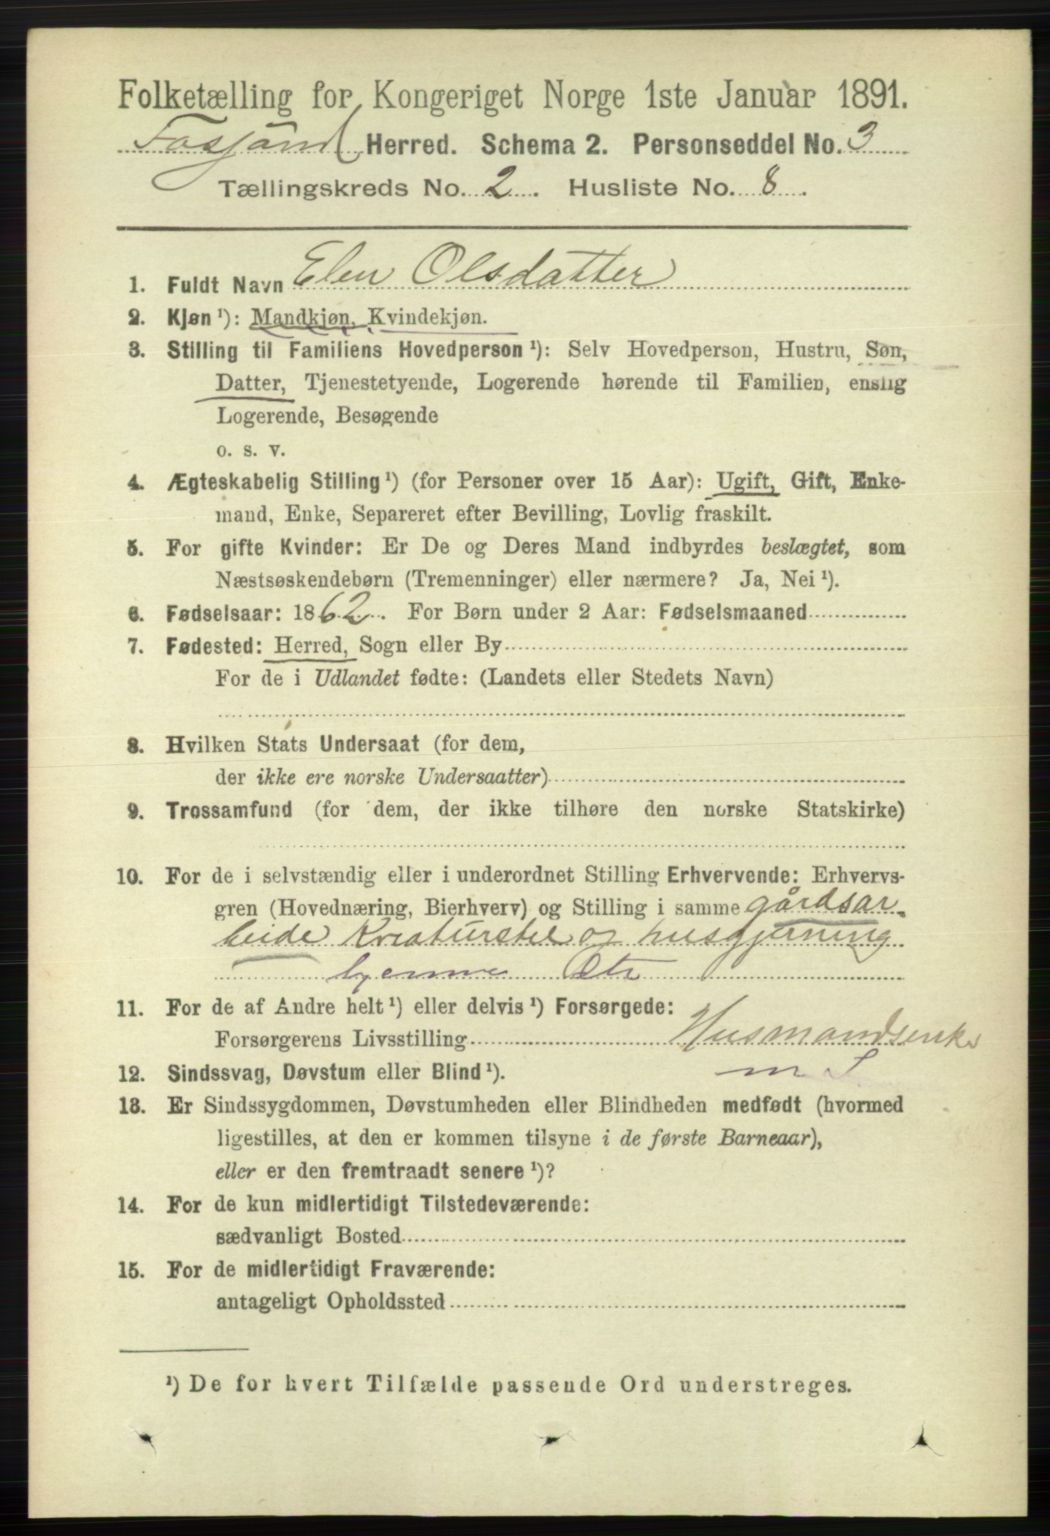 Folketælling for Kongeriget Norge 1ste Januar 1891.
Herred. Schema 2. Personseddel No. 3
Tællingskreds No. 2. Husliste No. 8.
1. Fuldt Navn Elen Olsdatter
2. Kjøn ¹): Mandkjøn, Kvindekjøn.
3. Stilling til Familiens Hovedperson ¹): Selv Hovedperson, Hustru, Søn,
Datter, Tjenestetyende, Logerende hørende til Familien, enslig
Logerende, Besøgende
o. s. v.
4. Ægteskabelig Stilling ¹) (for Personer over 15 Aar): Ugift, Gift, Enke-
mand, Enke, Separeret efter Bevilling, Lovlig fraskilt.
5. For gifte Kvinder: Er De og Deres Mand indbyrdes beslægtet, som
Næstsøskendebørn (Tremenninger) eller nærmere? Ja, Nei ¹).
6. Fødselsaar: 1862. For Børn under 2 Aar: Fødselsmaaned
7. Fødested: Herred, Sogn eller By
For de i Udlandet fødte: (Landets eller Stedets Navn)
8. Hvilken Stats Undersaat (for dem,
der ikke ere norske Undersaatter)
9. Trossamfund (for dem, der ikke tilhøre den norske Statskirke)
10. For de i selvstændig eller i underordnet Stilling Erhvervende: Erhvervs-
gren (Hovednæring, Bierhverv) og Stilling i samme gårdsar-
beide Kreaturstel og husgjerning
hjemme
11. For de af Andre helt ¹) eller delvis ¹) Forsørgede:
Forsørgerens Livsstilling Husmandsenke
12. Sindssvag, Døvstum eller Blind ¹). m
13. Er Sindssygdommen, Døvstumheden eller Blindheden medfødt (hvormed
ligestilles, at den er kommen tilsyne i de første Barneaar),
eller er den fremtraadt senere ¹)?
14. For de kun midlertidigt Tilstedeværende:
sædvanligt Bosted
15. For de midlertidigt Fraværende:
antageligt Opholdssted
¹) De for hvert Tilfælde passende Ord understreges.